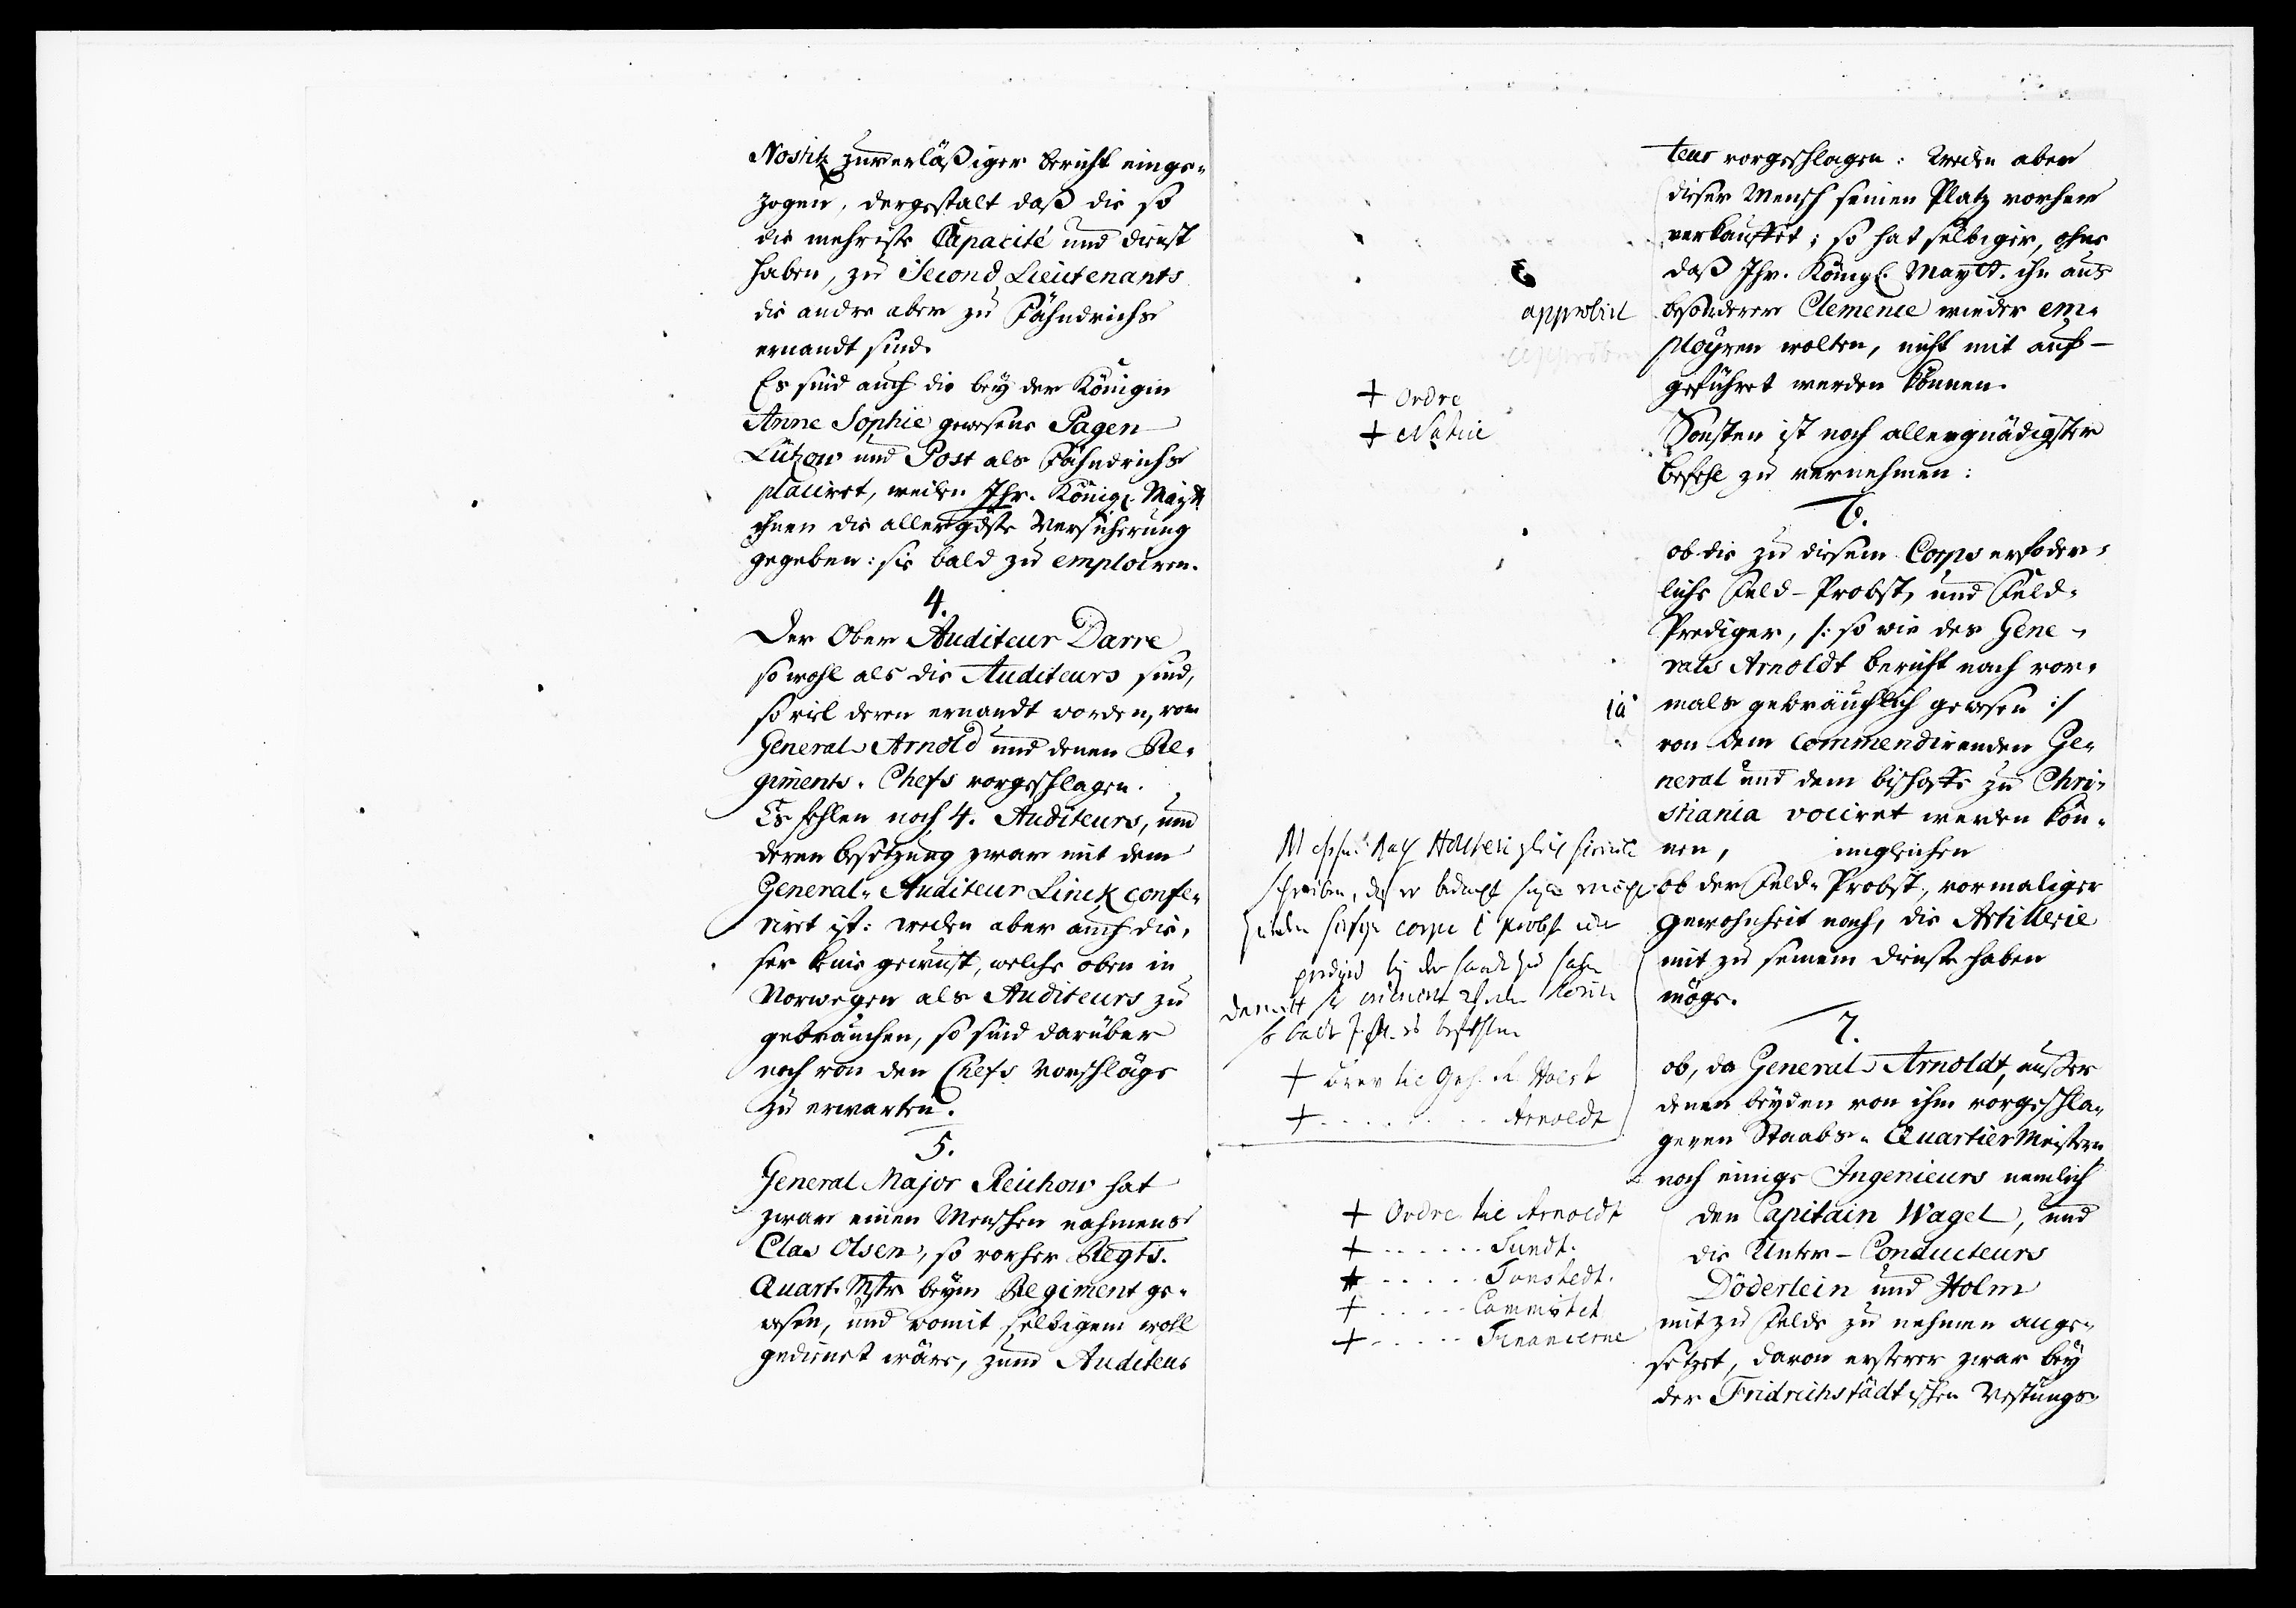 Nostitz zuverläßiger bericht einge-
zogen, dergestalt daß die so
die mehriste Capacité und dienst
haben, zu Second Lieutenants
die andre aber zu Fähndrichs
ernandt sind.
Es sind auch die bey der Königin
Anne Sophie gewesene Pagen
Lützow und Post als Fähndrichs
placiret, weilen Ihr. Königl. Maytt.
ihnen die allergdste Versicherung
gegeben: sie bald zu emploiren.
4.
Der Ober Auditeur Darre
so wohl als die Auditeurs sind,
so viel deren ernandt worden, vom
General Arnold und denen Re-
giments-Chefs vorgeschlagen.
Es fehlen noch 4. Auditeurs, um
deren besetzung zwar mit dem
General-Auditeur Linck confe-
rirt ist: weilen aber auch die-
ser keine gewust, welche oben in
Norwegen als Auditeurs zu
gebrauchen, so sind darüber
noch von den Chefs Vorschläge
zu erwarten.
5.
General Major Reichow hat
zwar einen Menschen nahmens
Clas Olsen, so vorher Regts.
Quart. Mstr beym Regiment ge-
wesen, und womit selbigem woll
gedienet wäre, zum Auditeur
teur vorgeschlagen: Weilen aber
dieser Mensch seinen Platz vorher
verkauffet; so hat selbiger, ohne
daß Ihr. Königl. Maytt. ihn aus
besonderer Clemence wieder em-
ployren wolten, nicht mit auf-
geführet werden können.
approbirt
+ Ordre
+ Notice
Sonsten ist noch allergnädigster
befehl zu vernehmen:
6.
ob die zu diesem Corps erfoder-
liche Feld-Probst, und Feld-
Prediger, /: so wie des Gene-
rals Arnoldt bericht nach vor-
mals gebräuchlich gewesen :/
von dem commendirenden Ge-
neral und dem bischoffe zu Chri-
stiania vociret werden kön-
nen, imgleichen
ob der Feld-Probst, vormaliger
gewohnheit nach, die Artillerie
mit zu seinem dienste haben
möge.
ja
schreiben, daß er
corps 1 probst
damitt
so baldt
+ brev til Geh. R. Holst
+ . . . . . . . . Arnoldt
7.
ob, da General Arnoldt, außer
denen beyden von ihm vorgeschla-
genen Staabs-Quartier Meistern
noch einige Ingenieurs nemlich
den Capitain Wagel, und
die Unter-Conducteurs
Döderlein und Holm
mit zu Felde zu nehmen ange-
setzet, davon ersterer zwar bey
der Fridrichstädtischen Vestungs-
+ Ordre til Arnoldt
+ . . . . . . Sundt.
+ . . . . . . Tonstedt.
+ . . . . . Committet
+ . . . . . Financerne